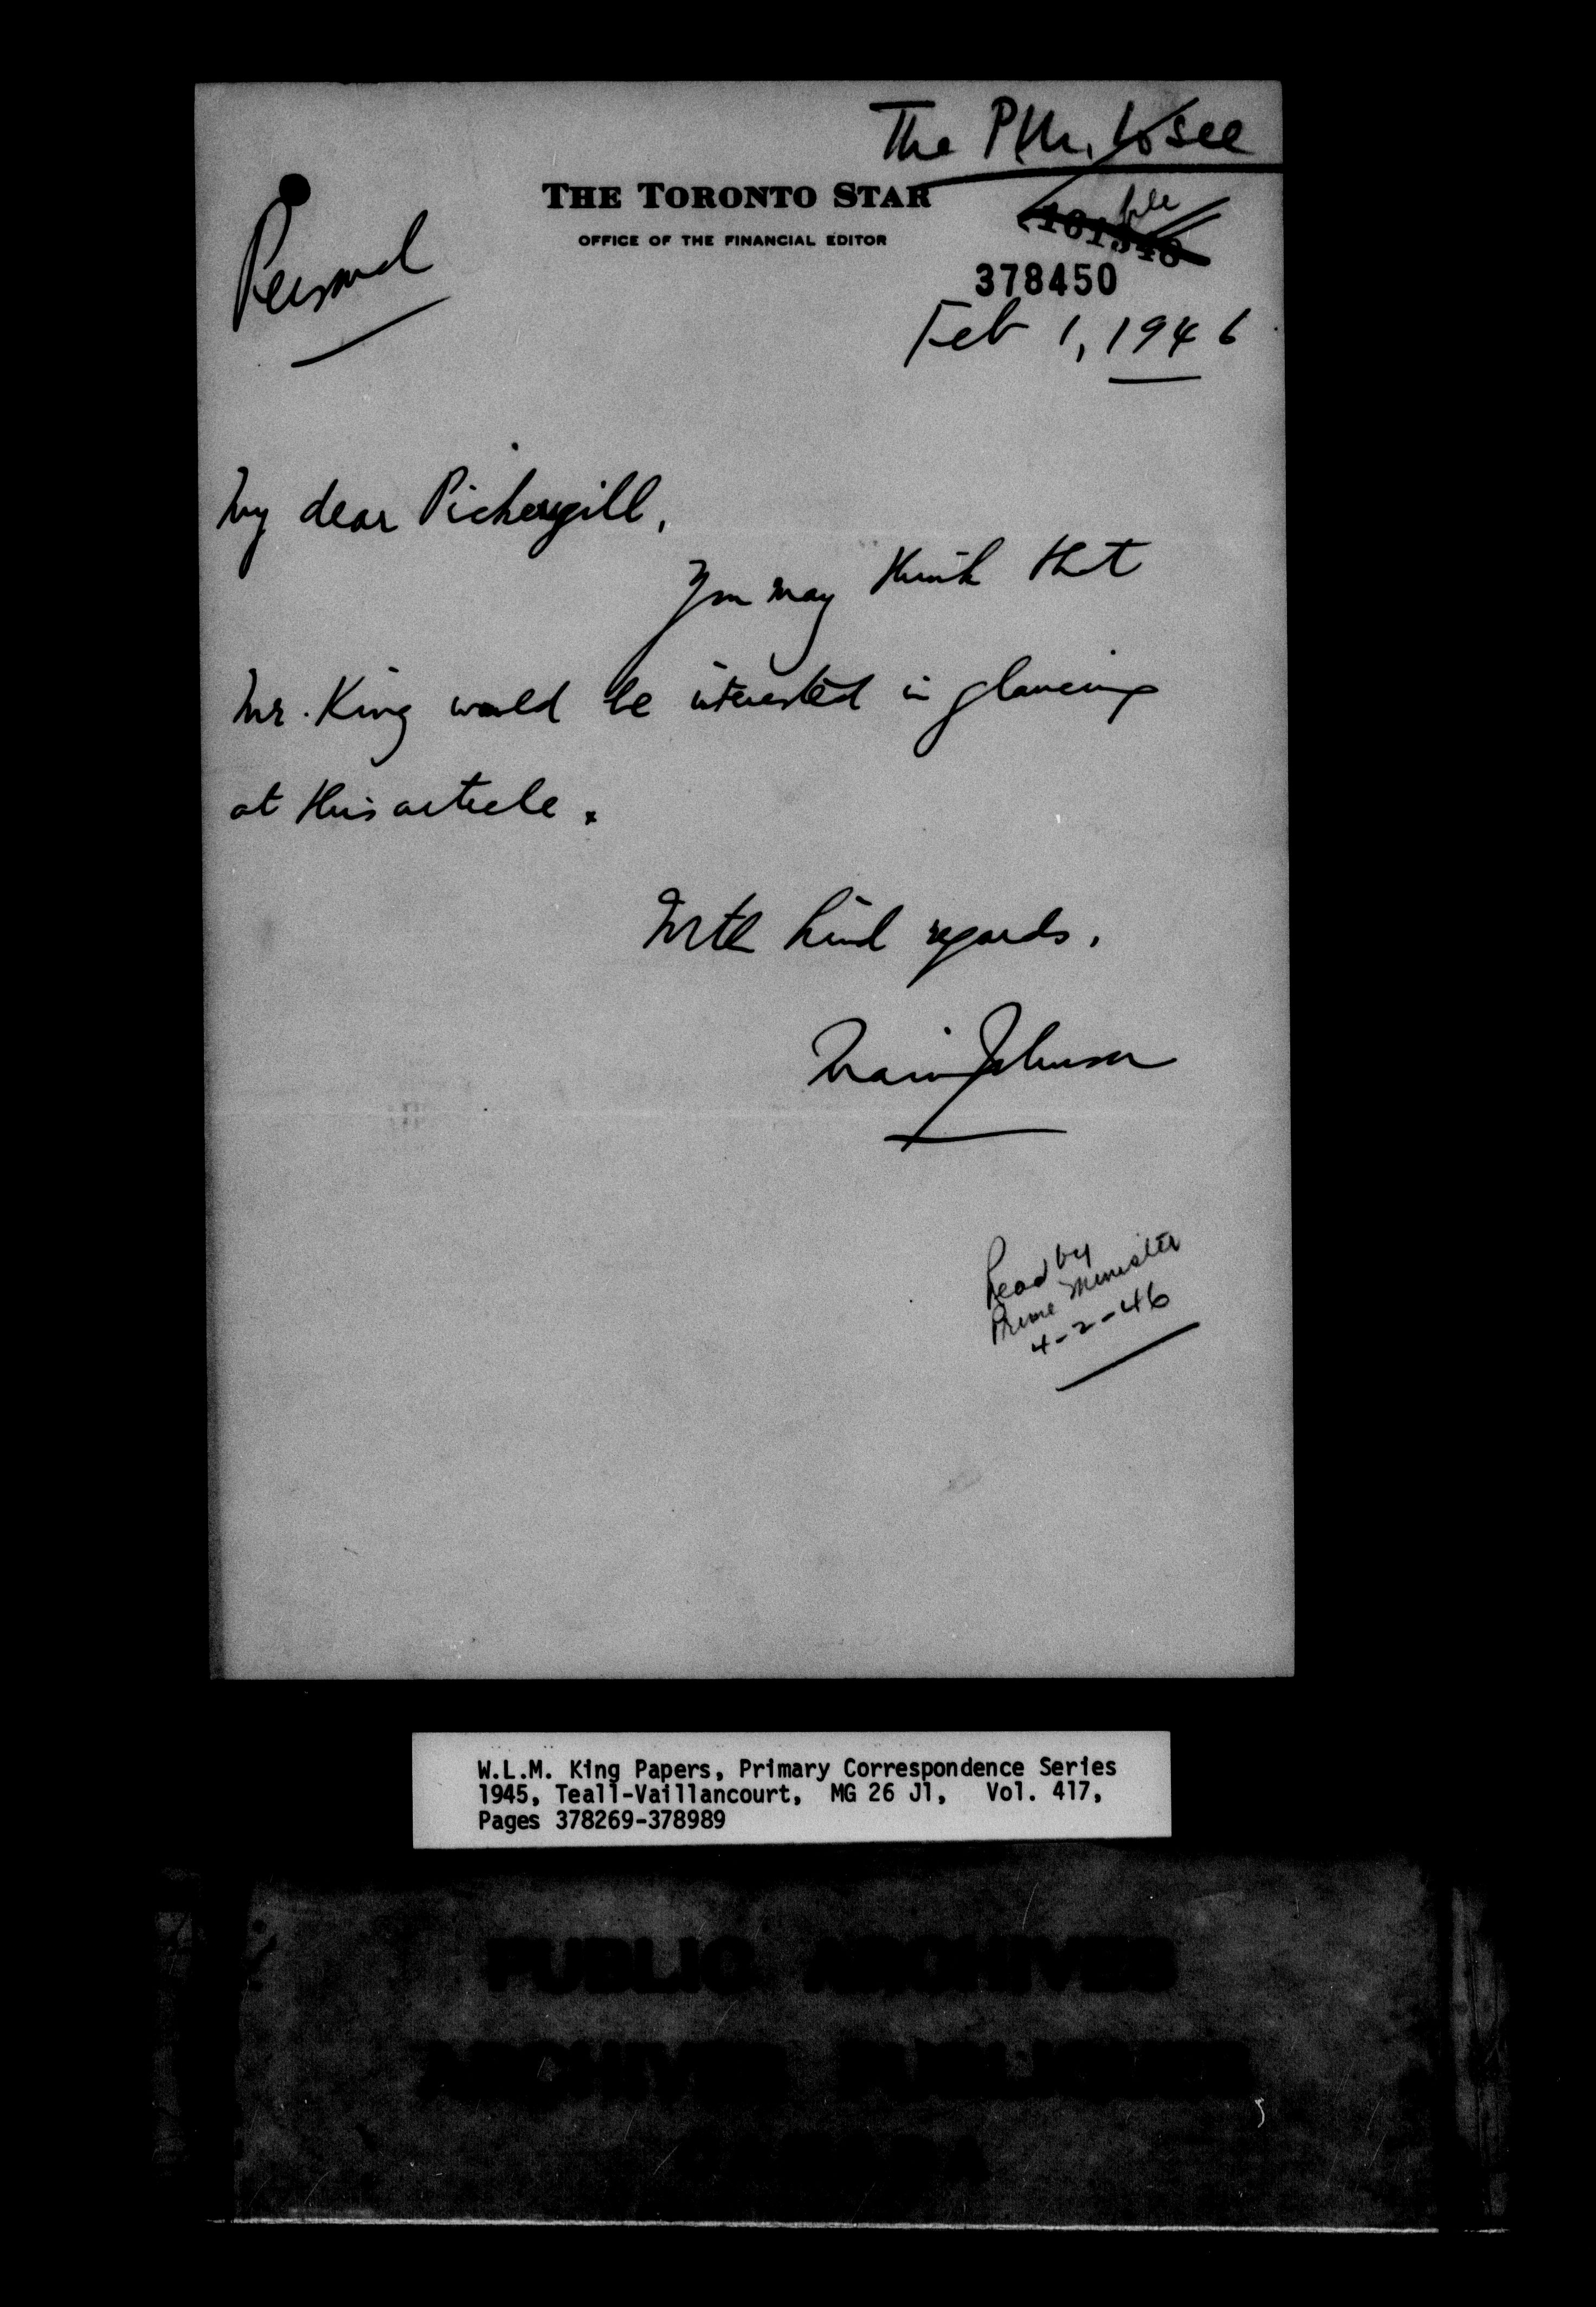 The P.M. to see
THE TORONTO STAR
OFFICE OF THE FINANCIAL EDITOR
file
378450
Personal
Feb 1, 1946
My dear Pickersgill,
You may think that
Mr. King would be interested in glancing
at this article.
With kind regards,
Johnson
Read by
Prime Minister
4-2-46
W.L.M. King Papers, Primary Correspondence Series
1945, Teall-Vaillancourt, MG 26 J1, Vol. 417,
Pages 378269-378989
PUBLIC ARCHIVES
ARCHIVES PUBLIQUES
CANADA